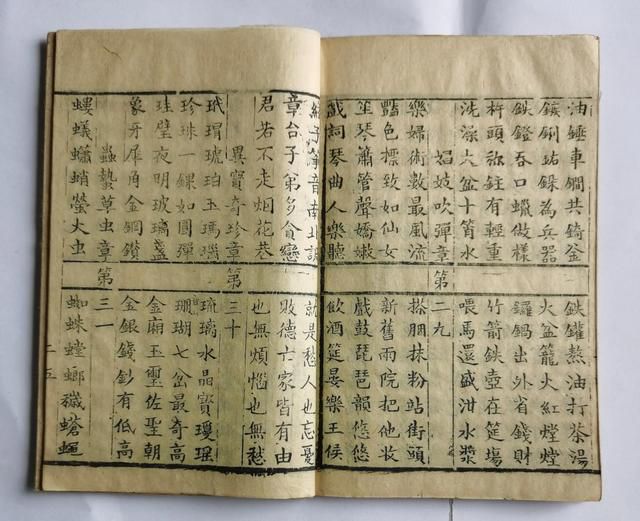 油錘車鐗共錡釜
鉄鑵熬油打茶湯
為兵器
火盆籠火紅
鉄鐙吞口蠟做樣
鑼鍋出外省錢財
杵頭弥有輕重
竹箭鉄壺在筵塲
洗澡大盆十筲水
喂馬還盛泔水漿
娼妓吹彈章
第二九
樂婦術數最風流
搽胭抹粉站街頭
豔色標致如仙女
新舊雨院把他收
笙琴簫管聲嬌嫩
戲鼓琵琶韻悠悠
戯詞琴曲人樂聽
飲酒筵宴樂王侯
子音南北調
就是愁人也忘憂
章台子弟多貪戀
敗德亡家皆有由
君若不走烟花巷
也無煩惱也無愁
異寶奇珍章
第三十
玳瑁琥珀玉瑪瑙
琉璃水晶寶瓊瑶
珍珠一錁如圓彈
珊瑚七盆最奇高
珪璧夜明玻璃盞
金廂玉璽佐聖朝
象牙犀角金鋼鑽
金銀錢鈔有低高
蟲蟄草虫章
第三一
螻蟻蠨蛸螢火虫
蜘蛛螳螂蒼蠅
二五